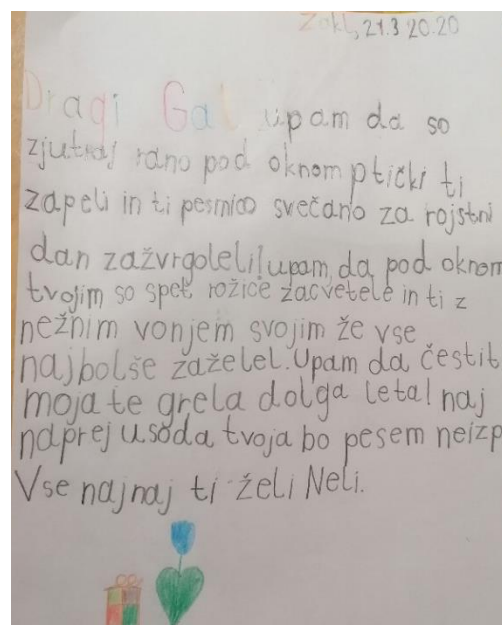 Zokl, 21.3 20.20
Dragi Gal upam da so
zjutraj rano pod oknom ptički ti
zapeli in ti pesmico svečano za rojstni
dan zažvrgoleli! upam, da pod oknom
tvojim so spet rožice zacvetele in ti z
nežnim vonjem svojim že vse
najbolše zaželel. Upam da čestit
moja te grela dolga leta! naj
naprej usoda tvoja bo pesem neizp
Vse najnaj ti želi Neli.